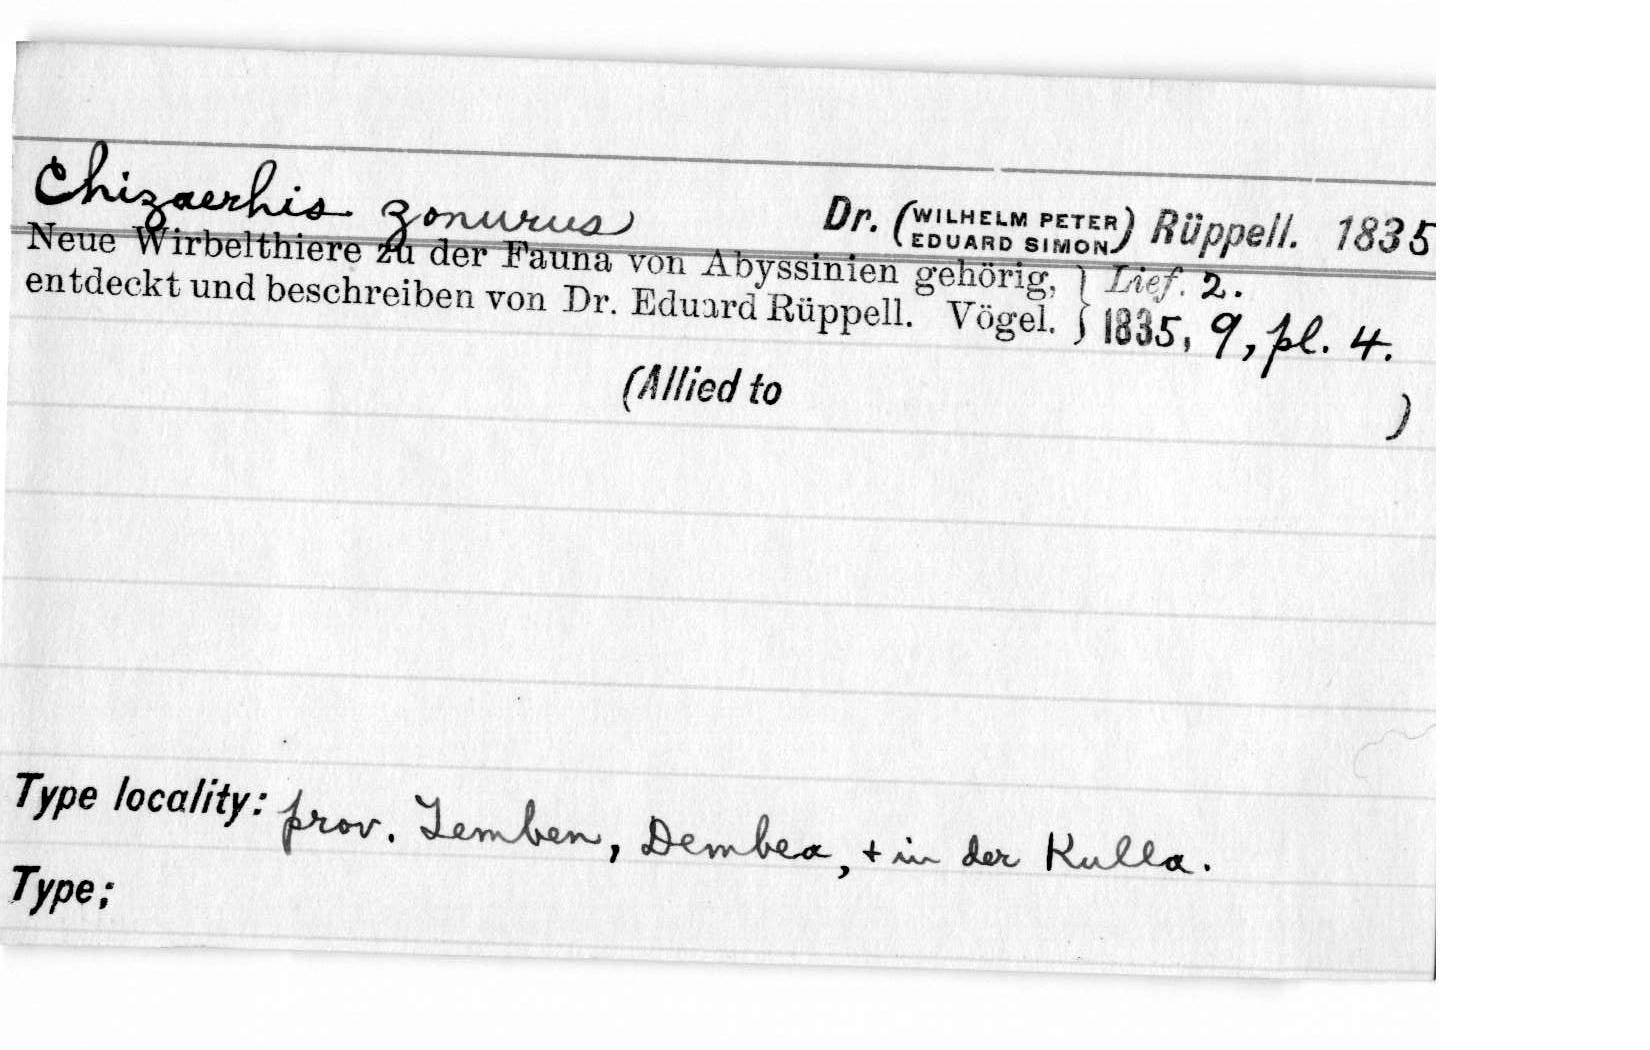 Chizaerhis zonurus Dr. (WILHELM PETER EDUARD SIMON) Rüppell. 1835
Neue Wirbelthiere zu der Fauna von Abyssinien gehörig, } Lief. 2.
entdeckt und beschreiben von Dr. Eduard Rüppell. Vögel. } 1835, 9, pl. 4.
(Allied to )
Type locality: prov. Temben, Dembea, + in der Kulla.
Type;